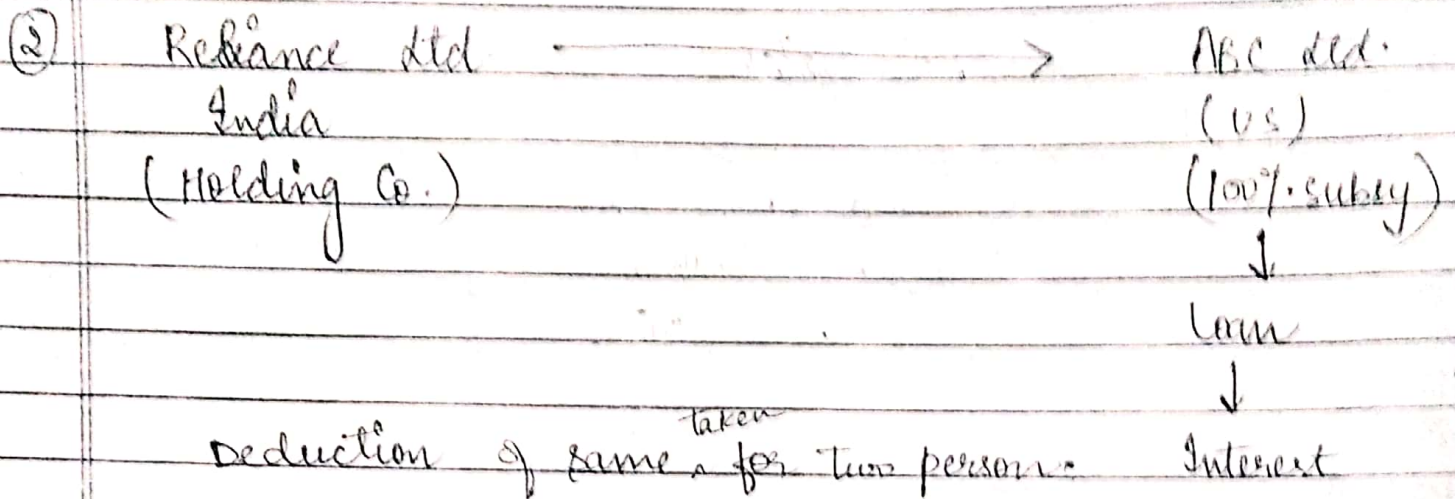 ② Reliance Ltd ⟶ ABC Ltd.
India (US)
(Holding Co.) (100% subsy)
↓
Loan
↓
Deduction of same taken for two person. Interest